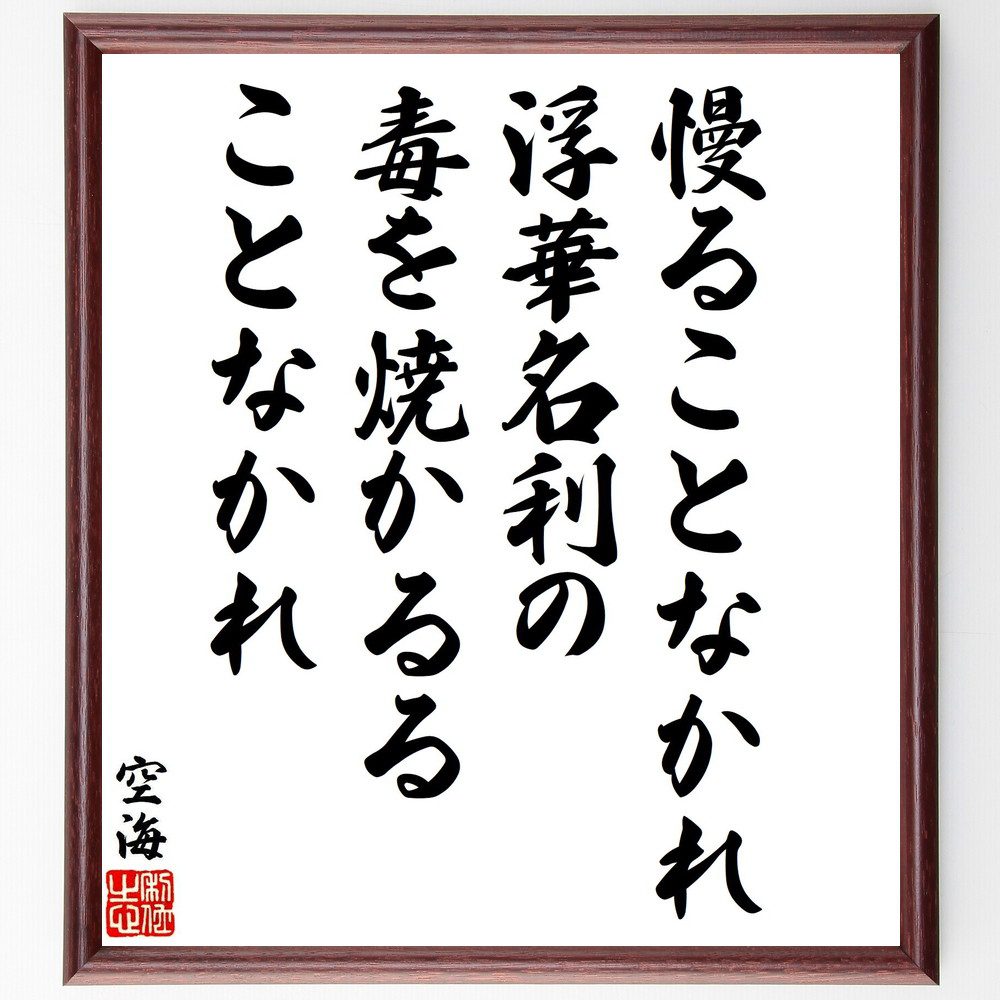 慢ることなかれ
浮華名利の
毒を焼かるる
ことなかれ
空海